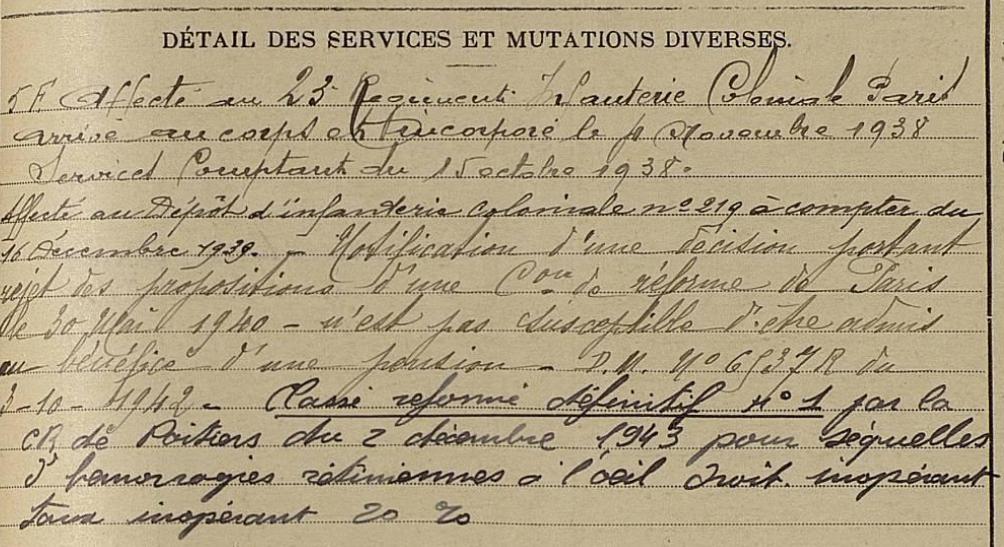 DÉTAIL DES SERVICES ET MUTATIONS DIVERSES.
Affecté au 23e Régiment Infanterie Coloniale Paris
arrivé au corps et incorporé le 4 Novembre 1938
Services Comptant du 15 octobre 1938.
Affecté au Dépôt d'infanterie coloniale n° 219 à compter du
16 décembre 1939. - Notification d'une décision portant
rejet des propositions d'une Con de réforme de Paris
le 30 Mai 1940 - n'est pas susceptible d'être admis
au bénéfice d'une pension - D.M. N° 6537R du
3-10-1942 - Classé réformé définitif n° 1 par la
CR de Poitiers du 2 décembre 1943 pour séquelles
d'hemorragies rétiniennes à l'oeil droit. inopérant
Taux inopérant 20 %